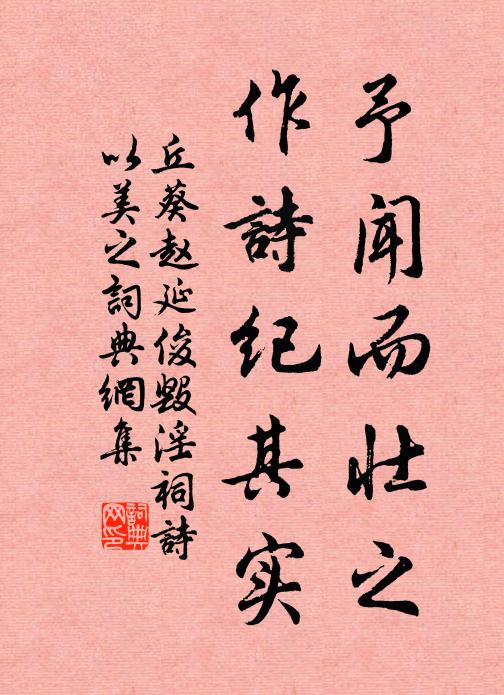 予闻而壮之
作詩纪其实
丘葵赵延俊毀淫祠詩
以美之詞典網集
詞典网印